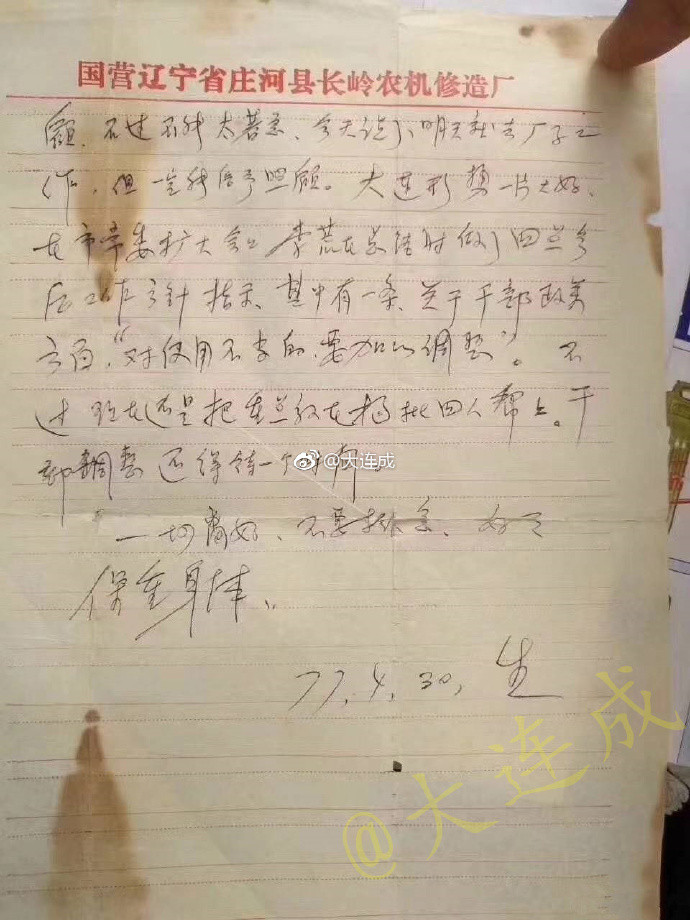 国营辽宁省庄河县长岭农机修造厂
顾。不过不能太着急、今天谈了、明天就去厂子工
作，但一定能给予照顾。大连形势一片大好、
在市革委扩大会上 李荒在总结时做了四点今
后工作方针指示、其中有一条、关于干部政策
方面，“对使用不当的，要加以调整”。不
过现在还是把重点放在揭批四人帮上。干
部调整还得待一个时期
@大连成
一切尚好、不要挂念、好了
保重身体、
77.4.30, 生
@大连成